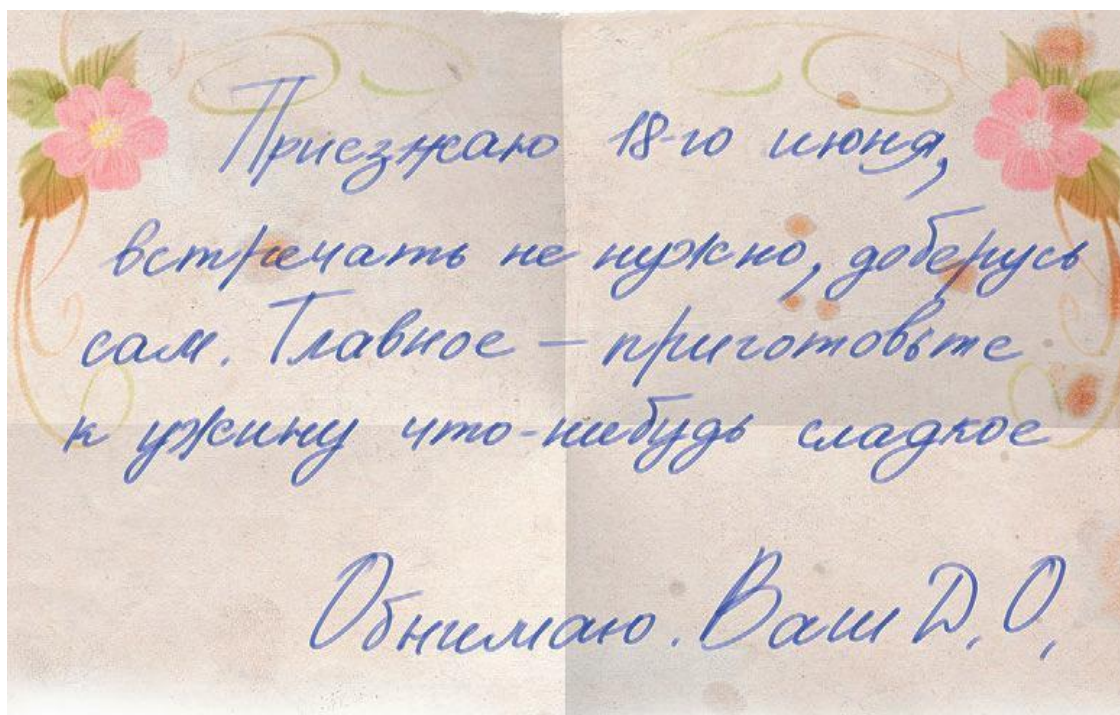 Приезжаю 18-го июня,
встречать не нужно, доберусь
сам. Главное – приготовьте
к ужину что-нибудь сладкое
Обнимаю. Ваш Д.О.